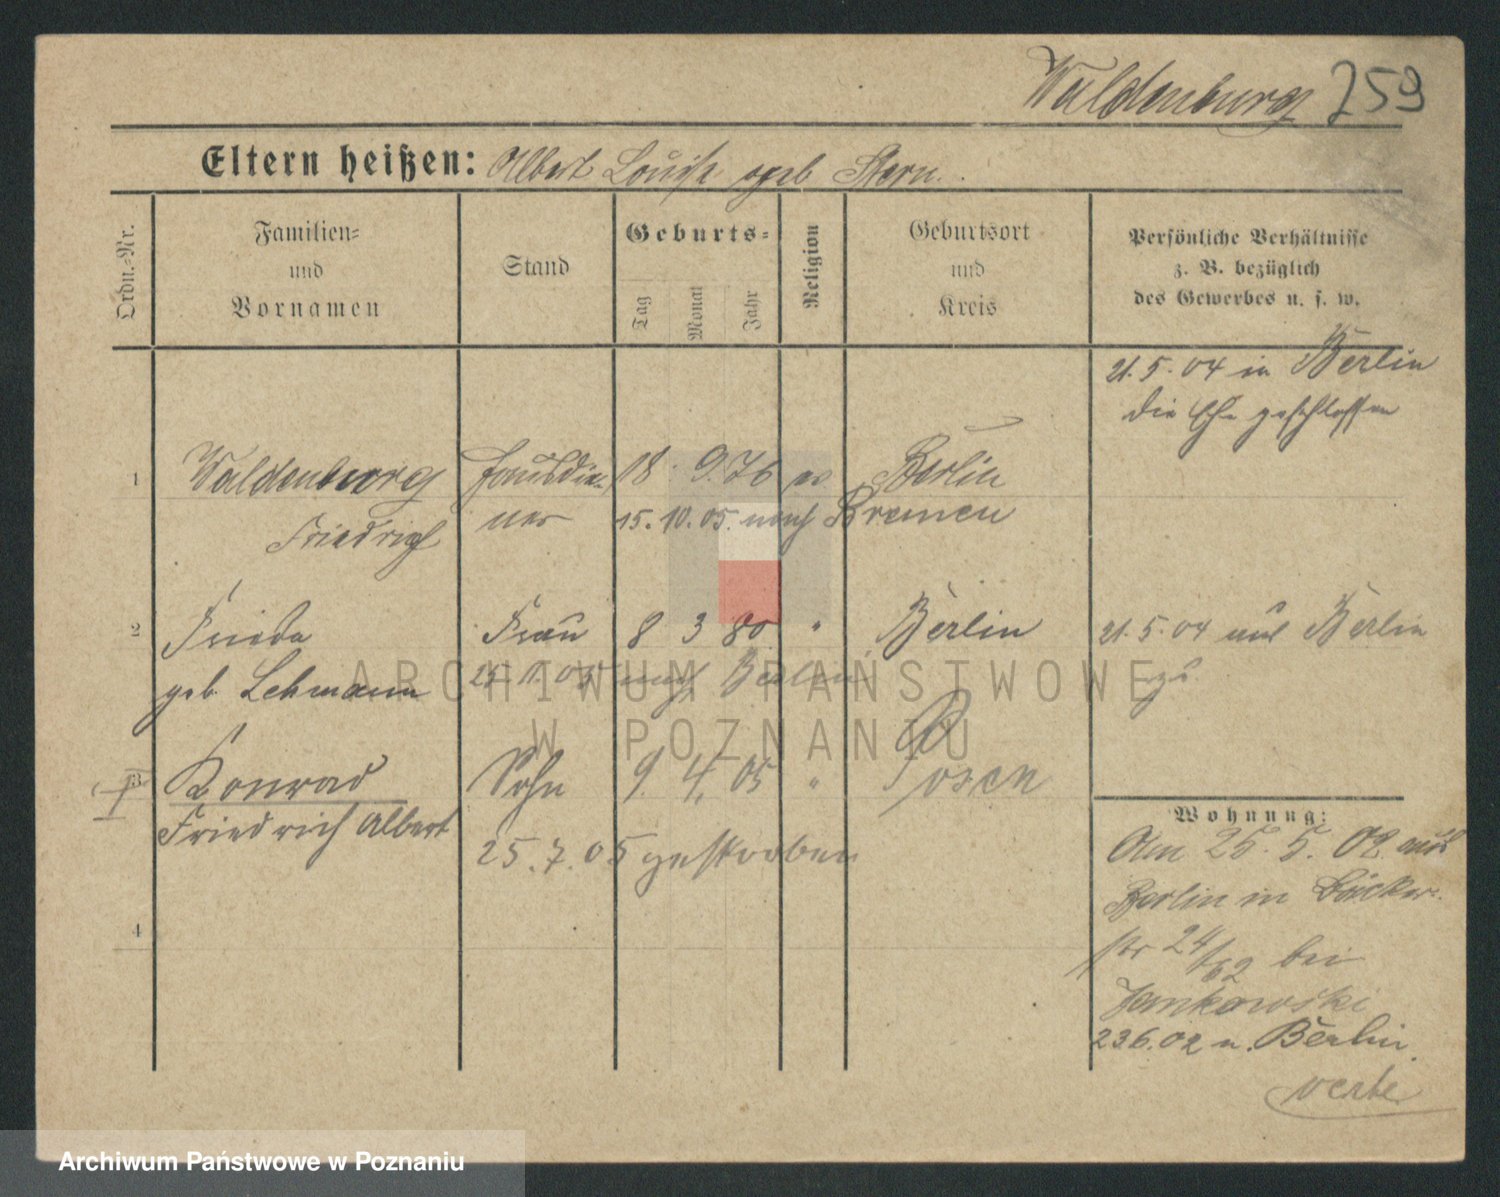 Waldenburg 759
Eltern heißen: Albert Louise geb Stern.
Ordn.-Nr.
Familien-
und
Vornamen
Stand
Geburts-
Tag
Monat
Jahr
Religion
Geburtsort
und
Kreis
Persönliche Verhältnisse
z. B. bezüglich
des Gewerbes u. s. w.
21.5.04 in Berlin
die Ehe geschlossen
1 Waldenburg Hausdie- 18. 9. 76 ev Berlin
Friedrich ner 15.10.05. nach Bremen
2 Frieda Frau 8 3 80 " Berlin 21.5.04 aus Berlin
geb. Lehmann 25.11.05 nach Berlin zu
3 Konrad Sohn 9. 4. 05 " Posen
Friedrich Albert 25.7.05 gestorben
4
Wohnung:
Am 25.5.02 aus
Berlin in Bäcker-
str 24/62 bei
Jankowski
23.6.02 n. Berlin.
verte
ARCHIWUM PAŃSTWOWE
W POZNANIU
Archiwum Państwowe w Poznaniu